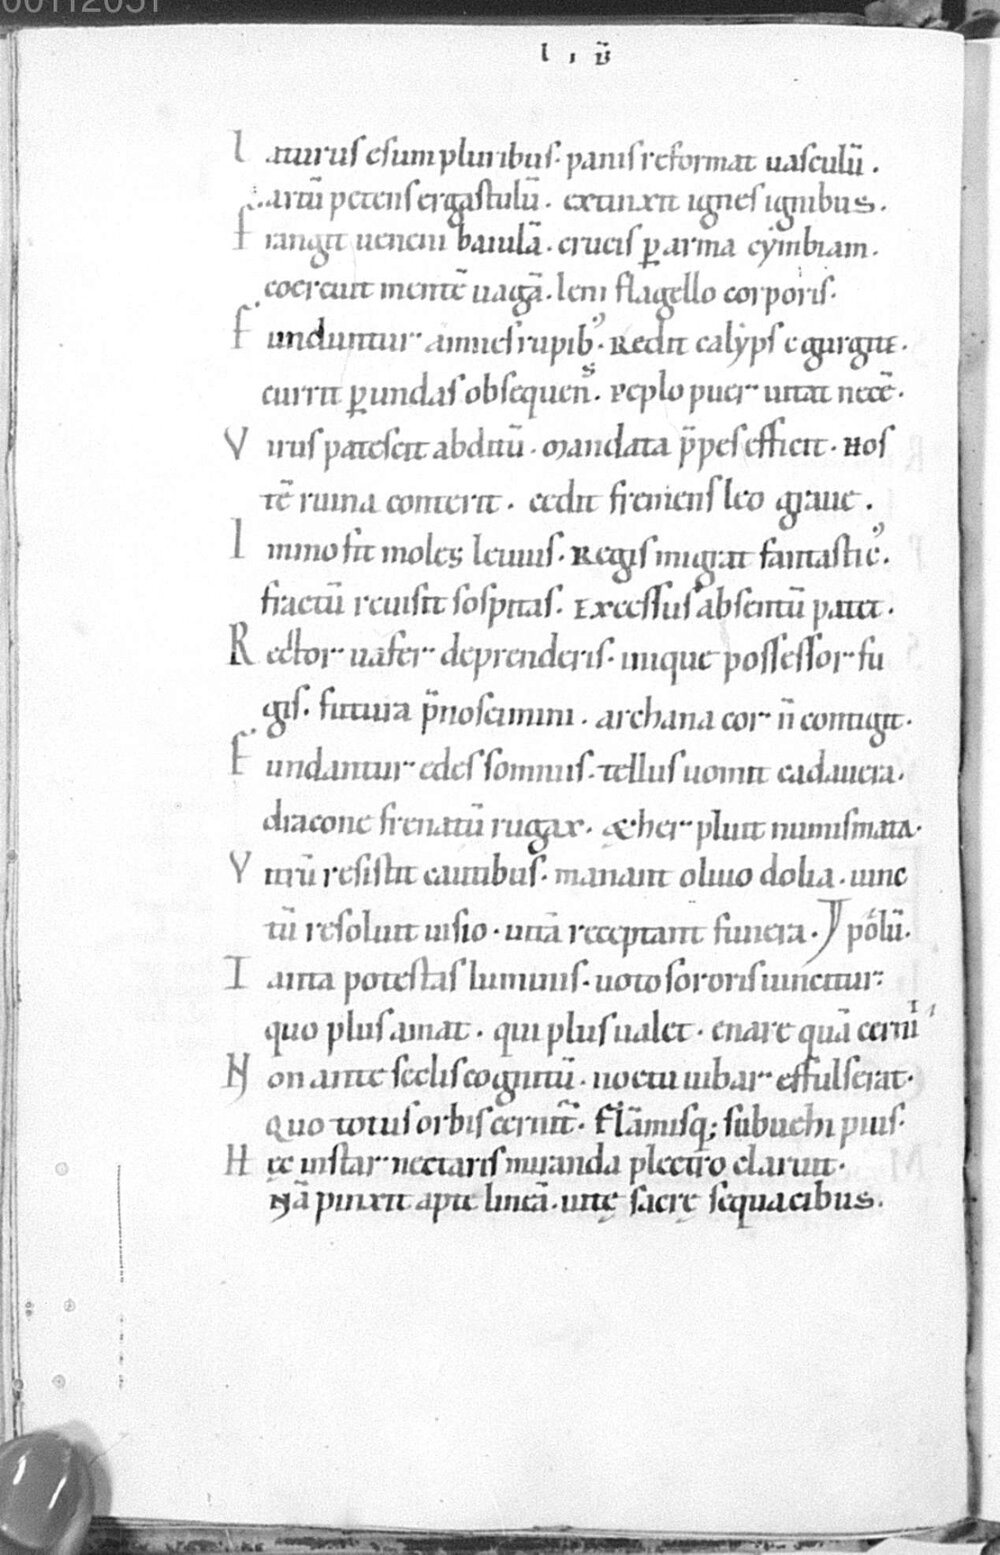 L aturus esum pluribus· panis reformat uasculū.
artū petens ergastulū. extinxit ignes ignibus.
F rangit ueneni baiulā. crucis ꝑ arma cymbiam.
coercuit mentē uagā. leni flagello corporis.
F unduntur amnes rupib᾽. Redit calyps e gurgite.
currit ꝑ undas obsequens. Peplo puer uitat necē.
V irus patescit abditū. Mandata p̄pes efficit. Hos
tē ruina conterit. cedit fremens leo graue.
I mmo fit moles leuius. Regis migrat fantastic᾽.
fractū reuisit sospitas. Excessus absentū patet.
R ector uafer deprenderis. inique possessor fu
gis. futura p̄noscimini. archana cor n̄ contigit.
F undantur edes somniis. tellus uomit cadauera.
dracone frenatū rugax. æther pluit numismata.
V itrū resistit cautibus. manant oliuo dolia. uinc
tū resoluit uisio. uitā receptant funera. Y pōlū.
T anta potestas luminis. uoto sororis uincitur:
quo plus amat. qui plus ualet. enare quā cerni
N on ante seclis cognitū. noctu iubar effulserat.
Quo totus orbis cernit̄. Flāmisq; subuehi pius.
H ęc instar nectaris miranda plectro claruit.
Nā pinxit apte lineā. uitę sacrę sequacibus.